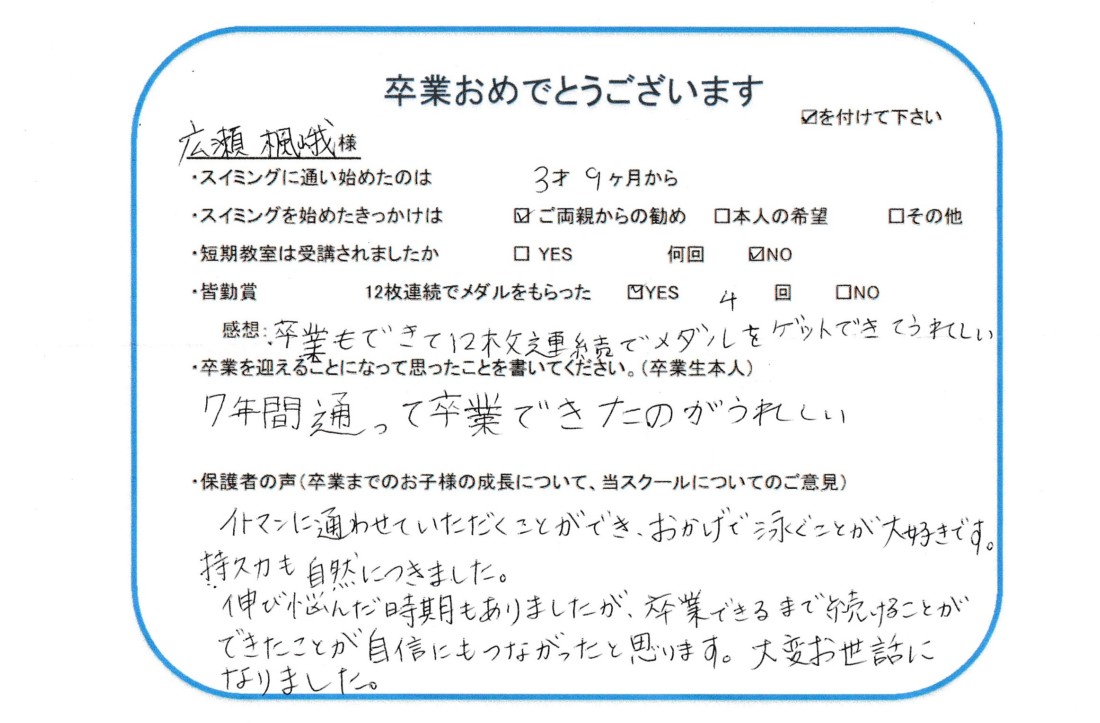 卒業おめでとうございます
☑を付けて下さい
広瀬 楓峨様
・スイミングに通い始めたのは 3才 9ヶ月から
・スイミングを始めたきっかけは ☑ご両親からの勧め □本人の希望 □その他
・短期教室は受講されましたか □ YES 何回 ☑NO
・皆勤賞 12枚連続でメダルをもらった ☑YES 4 回 □NO
感想:卒業もできて12枚連続でメダルをゲットできてうれしい
・卒業を迎えることになって思ったことを書いてください。(卒業生本人)
7年間通って卒業できたのがうれしい
・保護者の声(卒業までのお子様の成長について、当スクールについてのご意見)
イトマンに通わせていただくことができ、おかげで泳ぐことが大好きです。
持久力も自然につきました。
伸び悩んだ時期もありましたが、卒業できるまで続けることが
できたことが自信にもつながったと思います。大変お世話に
なりました。